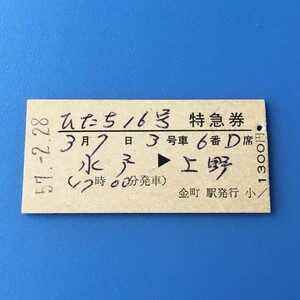 ひたち16号 特急券
3月7日 3号車 6番D席
水戸 ▶ 上野
(17時00分発車)
金町 駅発行 小
1300円
57.-2.28